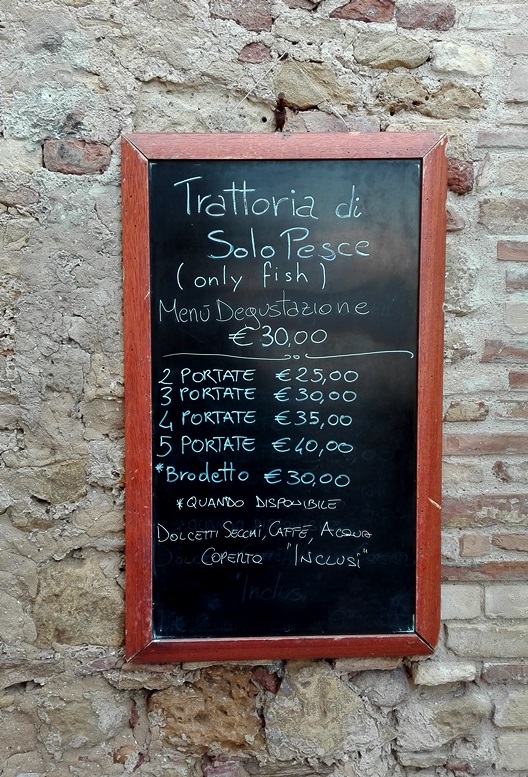 Trattoria di
Solo Pesce
(only fish)
Menù Degustazione
€ 30,00
2 PORTATE € 25,00
3 PORTATE € 30,00
4 PORTATE € 35,00
5 PORTATE € 40,00
*Brodetto € 30,00
*QUANDO DISPONIBILE
DOLCETTI SECCHI, CAFFÈ, ACQUA
COPERTO "INCLUSI"
"Inclusi